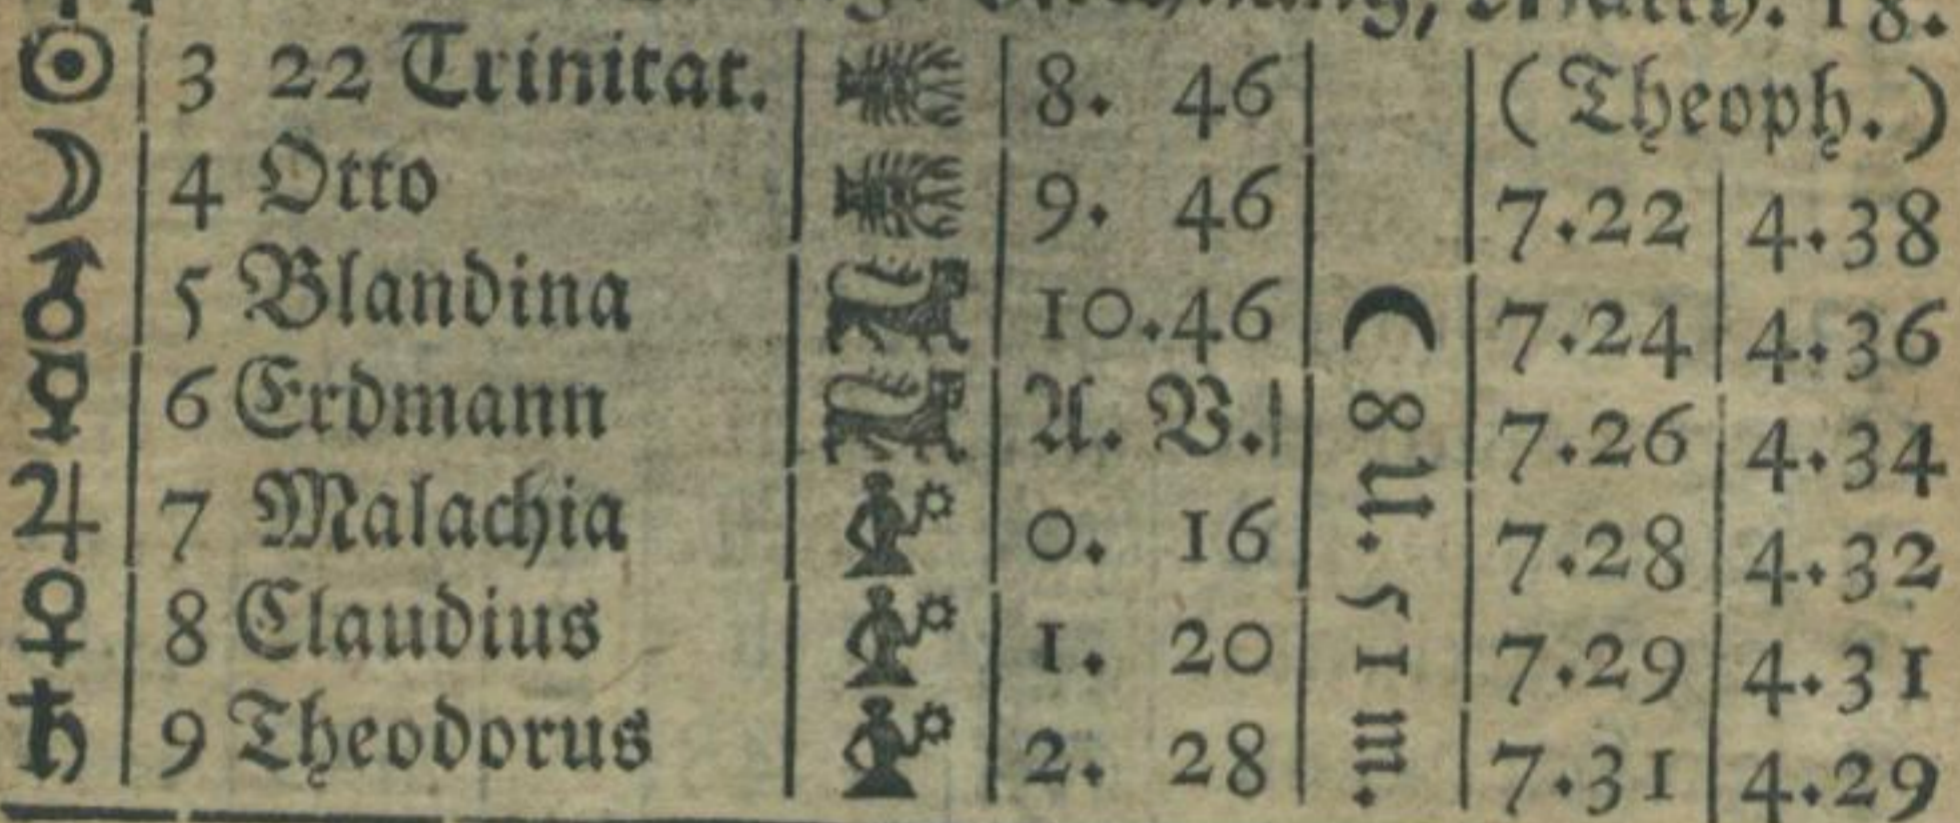 Rechnung, Matth. 18.
☉ 3 22 Trinitat. ♋ 8. 46 (Theoph.)
☽ 4 Otto ♋ 9. 46 7.22 4.38
♂ 5 Blandina ♌ 10.46 7.24 4.36
☿ 6 Erdmann ♌ A. V. 7.26 4.34
♃ 7 Malachia ♍ 0. 16 7.28 4.32
♀ 8 Claudius ♍ 1. 20 7.29 4.31
♄ 9 Theodorus ♍ 2. 28 7.31 4.29
☾ 8 U. 51 m.